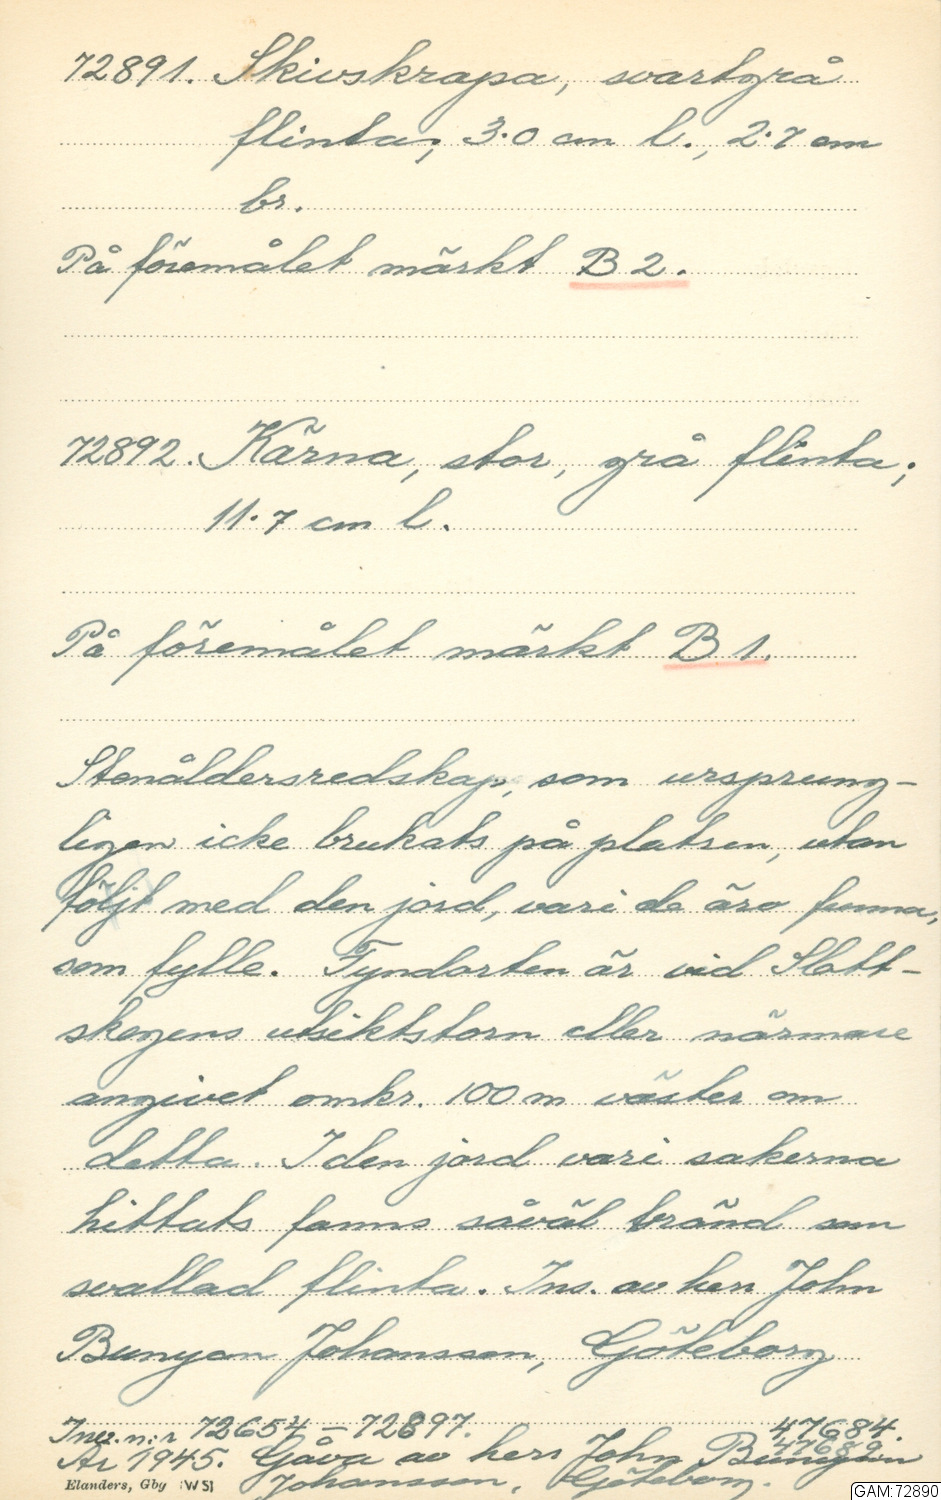 72891. Skivskrapa, svartgrå
flinta; 3.0 cm l., 2.7 cm
br.
På föremålet märkt B 2.
72892. Kärna, stor, grå flinta;
11.7 cm l.
På föremålet märkt B 1.
Stenåldersredskap, som ursprung-
ligen icke brukats på platsen, utan
följt med den jord, vari de äro funna,
som fylle. Fyndorten är vid Slott-
skogens utsiktstorn eller närmare
angivet omkr. 100 m väster om
detta. I den jord vari sakerna
hittats fanns såväl bränd som
svallad flinta. Ins. av herr John
Bunyan Johansson, Göteborg
Inv. n:r 72654 – 72897. 47684.
47689.
År 1945. Gåva av herr John Bunyan
Johansson, Göteborg.
Elanders, Gby WSI
GAM:72890